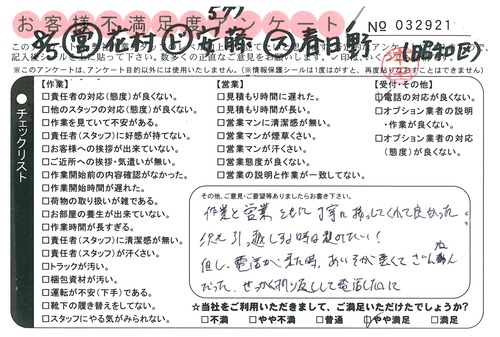 お客様不満足度アンケート
No 032921
8/5 営 花村 ド 安藤 春日野
(昭和区)
※このアンケートは、アンケート目的以外には使用いたしません。(※情報保護シールは1度はがすと、再度貼りなおすことはできません)
チェックリスト
【作業】
□責任者の対応(態度)が良くない。
□他のスタッフの対応(態度)が良くない。
□作業を見ていて不安がある。
□責任者(スタッフ)に好感が持てない。
□お客様への挨拶が出来ていない。
□ご近所への挨拶・気遣いが無い。
□作業開始前の内容確認がなかった。
□作業開始時間が遅れた。
□荷物の取り扱いが雑である。
□お部屋の養生が出来ていない。
□作業時間が長すぎる。
□責任者(スタッフ)に清潔感が無い。
□責任者(スタッフ)が汗くさい。
□トラックが汚い。
□梱包資材が汚い。
□運転が不安(下手)である。
□靴下の履き替えをしてない。
□スタッフにやる気がみられない。
【営業】
□見積もり時間に遅れた。
□見積もり時間が長い。
□営業マンに清潔感が無い。
□営業マンが煙草くさい。
□営業マンが汗くさい。
□営業態度が良くない。
□営業の説明と作業が一致してない。
【受付・その他】
□電話の対応が良くない。
□オプション業者の説明
・作業が良くない。
□オプション業者の対応
(態度)が良くない。
その他、ご意見・ご要望等ありましたらお書き下さい。
作業と営業ともに丁寧に扱ってくれて良かった
次も引っ越しする時は頼みたい!
但し、電話がきた時、あいそが悪くてざんねん
だった。せっかく折り返しして電話したのに
☆当社をご利用いただきまして、ご満足いただけたでしょうか?
□不満 □やや不満 □普通 □やや満足 □満足